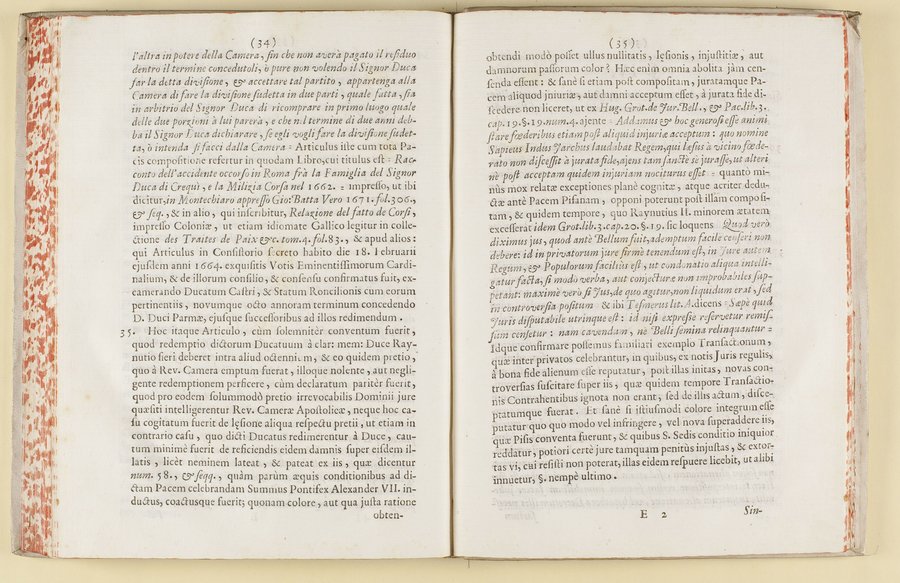 (34)
l'altra in potere della Camera, fin che non averà pagato il residuo
dentro il termine concedutoli, ò pure non volendo il Signor Duca
far la detta divisione, & accettare tal partito, appartenga alla
Camera di fare la divisione sudetta in due parti, quale fatta, sia
in arbitrio del Signor Duca di ricomprare in primo luogo quale
delle due porzioni à lui parerà, e che nel termine di due anni deb-
ba il Signor Duca dichiarare, se egli vogli fare la divisione sudet-
ta, ò intenda si facci dalla Camera = Articulus iste cum tota Pa-
cis compositione refertur in quodam Libro, cui titulus est : Rac-
conto dell'accidente occorso in Roma frà la Famiglia del Signor
Duca di Crequì, e la Milizia Corsa nel 1662. = impresso, ut ibi
dicitur, in Montechiaro appresso Gio: Batta Vero 1671. fol. 306.,
& seq., & in alio, qui inscribitur, Relazione del fatto de Corsi,
impresso Coloniæ, ut etiam idiomate Gallico legitur in colle-
ctione des Traites de Paix &c. tom. 4. fol. 83., & apud alios :
qui Articulus in Consistorio secreto habito die 18. Februarii
ejusdem anni 1664. exquisitis Votis Eminentissimorum Cardi-
nalium, & de illorum consilio, & consensu confirmatus fuit, ex-
camerando Ducatum Castri, & Statum Roncilionis cum eorum
pertinentiis, novumque octo annorum terminum concedendo
D. Duci Parmæ, ejusque successoribus ad illos redimendum.
35. Hoc itaque Articulo, cùm solemnitèr conventum fuerit,
quod redemptio dictorum Ducatuum à clar: mem: Duce Ray-
nutio fieri deberet intra aliud octennium, & eo quidem pretio,
quo à Rev. Camera emptum fuerat, illoque nolente, aut negli-
gente redemptionem perficere, cùm declaratum paritèr fuerit,
quod pro eodem solummodò pretio irrevocabilis Dominii jure
quæsiti intelligerentur Rev. Cameræ Apostolicæ, neque hoc ca-
su cogitatum fuerit de lęsione aliqua respectu pretii, ut etiam in
contrario casu, quo dicti Ducatus redimerentur à Duce, cau-
tum minimè fuerit de reficiendis eidem damnis super eisdem il-
latis, licèt neminem lateat, & pateat ex iis, quæ dicentur
num. 58., & seqq., quàm parùm æquis conditionibus ad di-
ctam Pacem celebrandam Summus Pontifex Alexander VII. in-
ductus, coactusque fuerit; quonam colore, aut qua justa ratione
obten-
(35)
obtendi modò posset ullus nullitatis, lęsionis, injustitiæ, aut
damnorum passorum color? Hæc enim omnia abolita jàm cen-
senda essent : & sanè si etiam post compositam, juratamque Pa-
cem aliquod injuriæ, aut damni acceptum esset, à jurata fide di-
scedere non liceret, ut ex Hug. Grot. de Jur. Bell., & Pac. lib. 3.
cap. 19. §. 19. num. 4. ajente : Addamus & hoc generosi esse animi
stare fœderibus etiam post aliquid injuriæ acceptum : quo nomine
Sapiens Indus Jarchus laudabat Regem, qui læsus à vicino fœde-
rato non discessit à jurata fide, ajens tam sanctè se jurasse, ut alteri
nè post acceptam quidem injuriam nociturus esset = quantò mi-
nùs mox relatæ exceptiones planè cognitæ, atque acriter dedu-
ctæ antè Pacem Pisanam, opponi poterunt post illam composi-
tam, & quidem tempore, quo Raynutius II. minorem ætatem
excesserat idem Grot. lib. 3. cap. 20. §. 19. sic loquens Quod verò
diximus jus, quod antè Bellum fuit, ademptum facile censeri non
debere: id in privatorum jure firmè tenendum est, in Jure autem
Regum, & Populorum facilius est, ut condonatio aliqua intelli-
gatur facta, si modò verba, aut conjecturæ non improbabiles sup-
petant: maximè verò si Jus, de quo agitur, non liquidum erat, sed
in controversia positum = & ibi Tesmerus lit. A. dicens = Sæpè quid
Juris disputabile utrinque est : id nisi expresse reservetur remis-
sum censetur : nam cavendum, nè Belli semina relinquantur =
Idque confirmare possemus familiari exemplo Transactionum,
quæ inter privatos celebrantur, in quibus, ex notis Juris regulis,
à bona fide alienum esse reputatur, post illas initas, novas con-
troversias suscitare super iis, quæ quidem tempore Transactio-
nis Contrahentibus ignota non erant, sed de illis actum, disce-
ptatumque fuerat. Et sanè si istiusmodi colore integrum esse
putatur quo quo modo vel infringere, vel nova superaddere iis,
quæ Pisis conventa fuerunt, & quibus S. Sedis conditio iniquior
reddatur, potiori certè jure tamquam penitùs injustas, & extor-
tas vi, cui resisti non poterat, illas eidem respuere licebit, ut alibi
innuetur, §. nempè ultimo.
E 2
Sin-